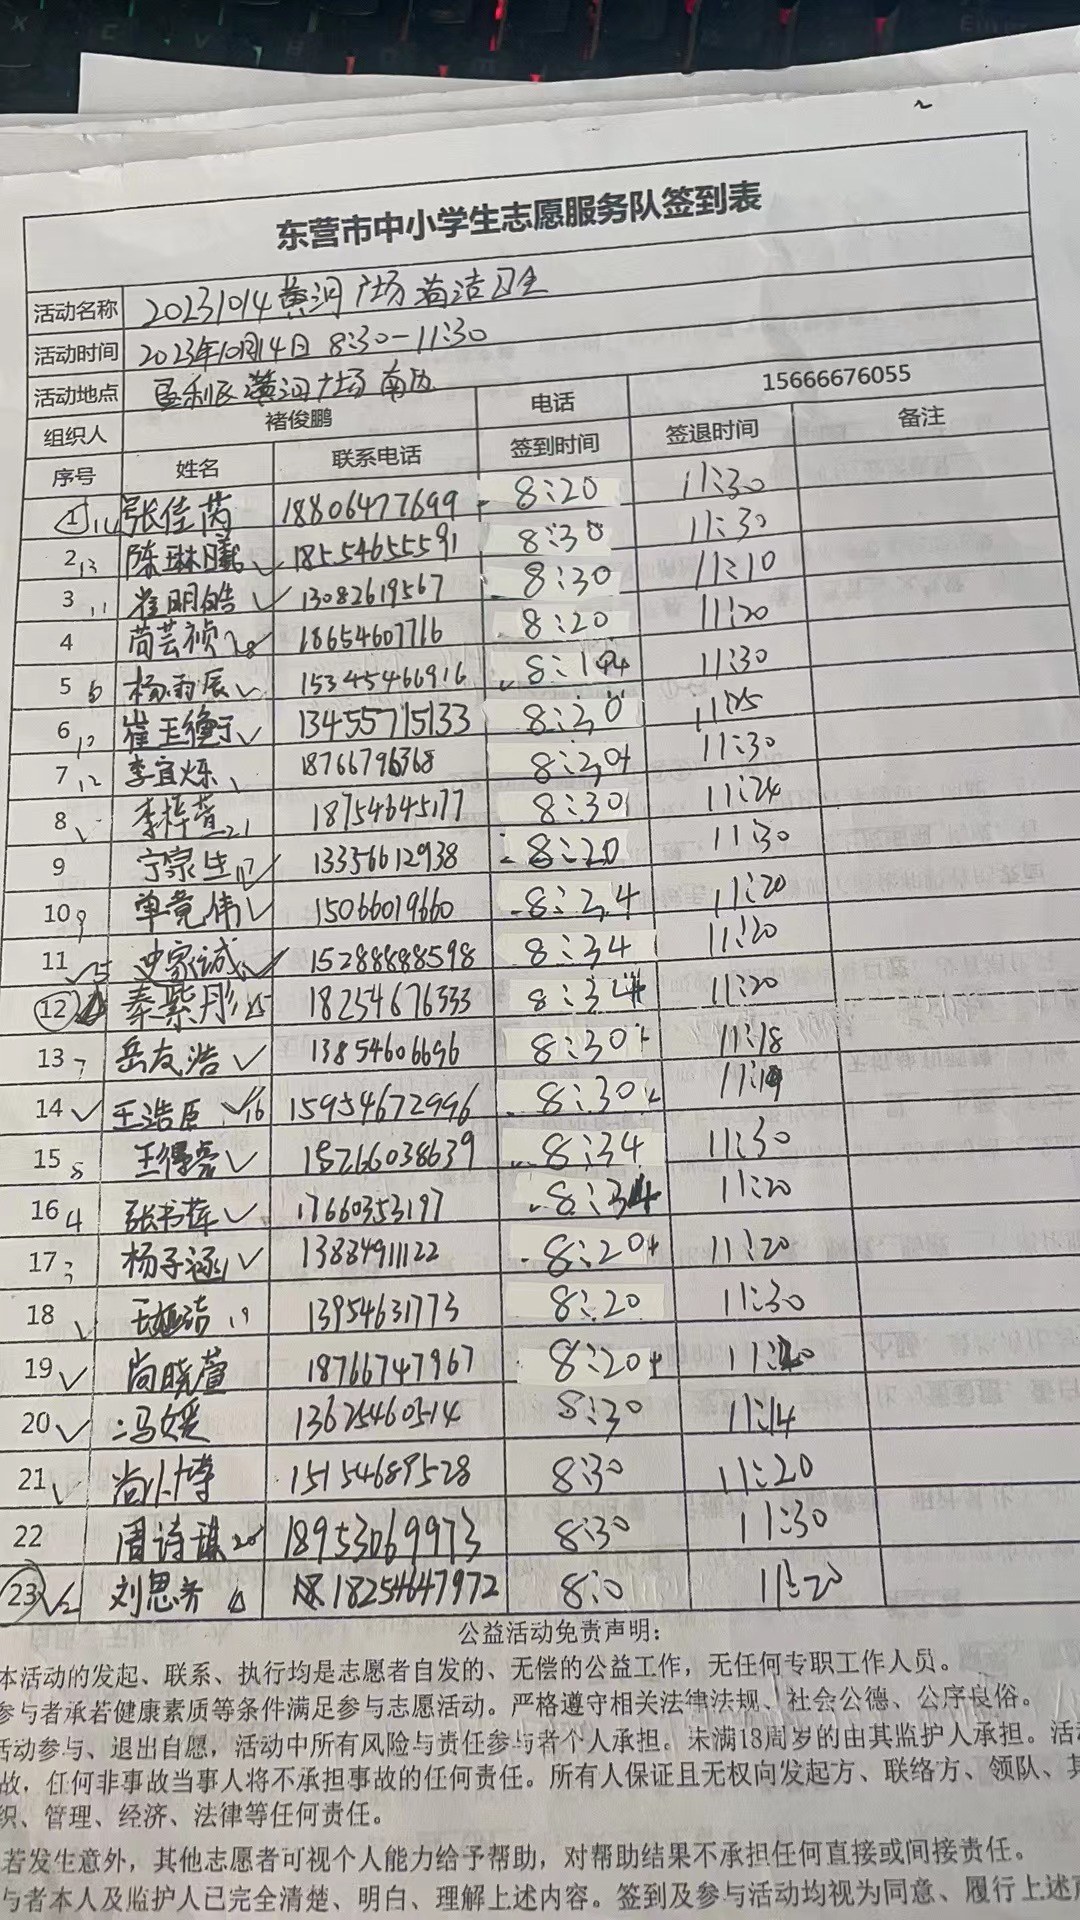 东营市中小学生志愿服务队签到表
活动名称 20231014黄河广场清洁卫生
活动时间 2023年10月14日 8:30-11:30
活动地点 垦利区黄河广场南区
组织人 褚俊鹏 电话 15666676055
序号 姓名 联系电话 签到时间 签退时间 备注
1 14 张佳芮 18806477699 8:20 11:30
2 13 陈琳曦 18554655591 8:30 11:30
3 11 崔明皓 13082619567 8:30 11:10
4 苘芸祯 18654607716 8:20 11:20
5 6 杨雨辰 15345466916 11:30
6 10 崔王 13455715133 8:20
7 12 李宜烁 18766796368 8:20 11:30
8 李梓萱 21 18754645177 8:30 11:24
9 宁家生 17 13356612938 8:20 11:30
10 9 单竟伟 15066019660 8:24 11:20
11 5 史家诚 15288888598 8:34 11:20
12 秦紫彤 15 18254676333 8:34 11:20
13 7 岳友浩 13854606696 8:30 11:18
14 王浩臣 16 15954672996 8:30
15 8 王得亮 15266038639 8:34 11:30
16 4 张书 17660353197 8:34 11:20
17 3 杨子涵 13884911122 8:20 11:20
18 王 19 13954631773 8:20 11:30
19 尚晓萱 18766747967 8:20
20 冯媛 13625460514 8:30 11:14
21 尚小博 15154689528 8:30 11:20
22 周诗琪 20 18953069973 8:30 11:30
23 2 刘思齐 18254647972 8:0 11:20
公益活动免责声明：
本活动的发起、联系、执行均是志愿者自发的、无偿的公益工作，无任何专职工作人员。
参与者承若健康素质等条件满足参与志愿活动。严格遵守相关法律法规、社会公德、公序良俗。
活动参与、退出自愿，活动中所有风险与责任参与者个人承担。未满18周岁的由其监护人承担。活
故，任何非事故当事人将不承担事故的任何责任。所有人保证且无权向发起方、联络方、领队、其
织、管理、经济、法律等任何责任。
若发生意外，其他志愿者可视个人能力给予帮助，对帮助结果不承担任何直接或间接责任。
与者本人及监护人已完全清楚、明白、理解上述内容。签到及参与活动均视为同意、履行上述